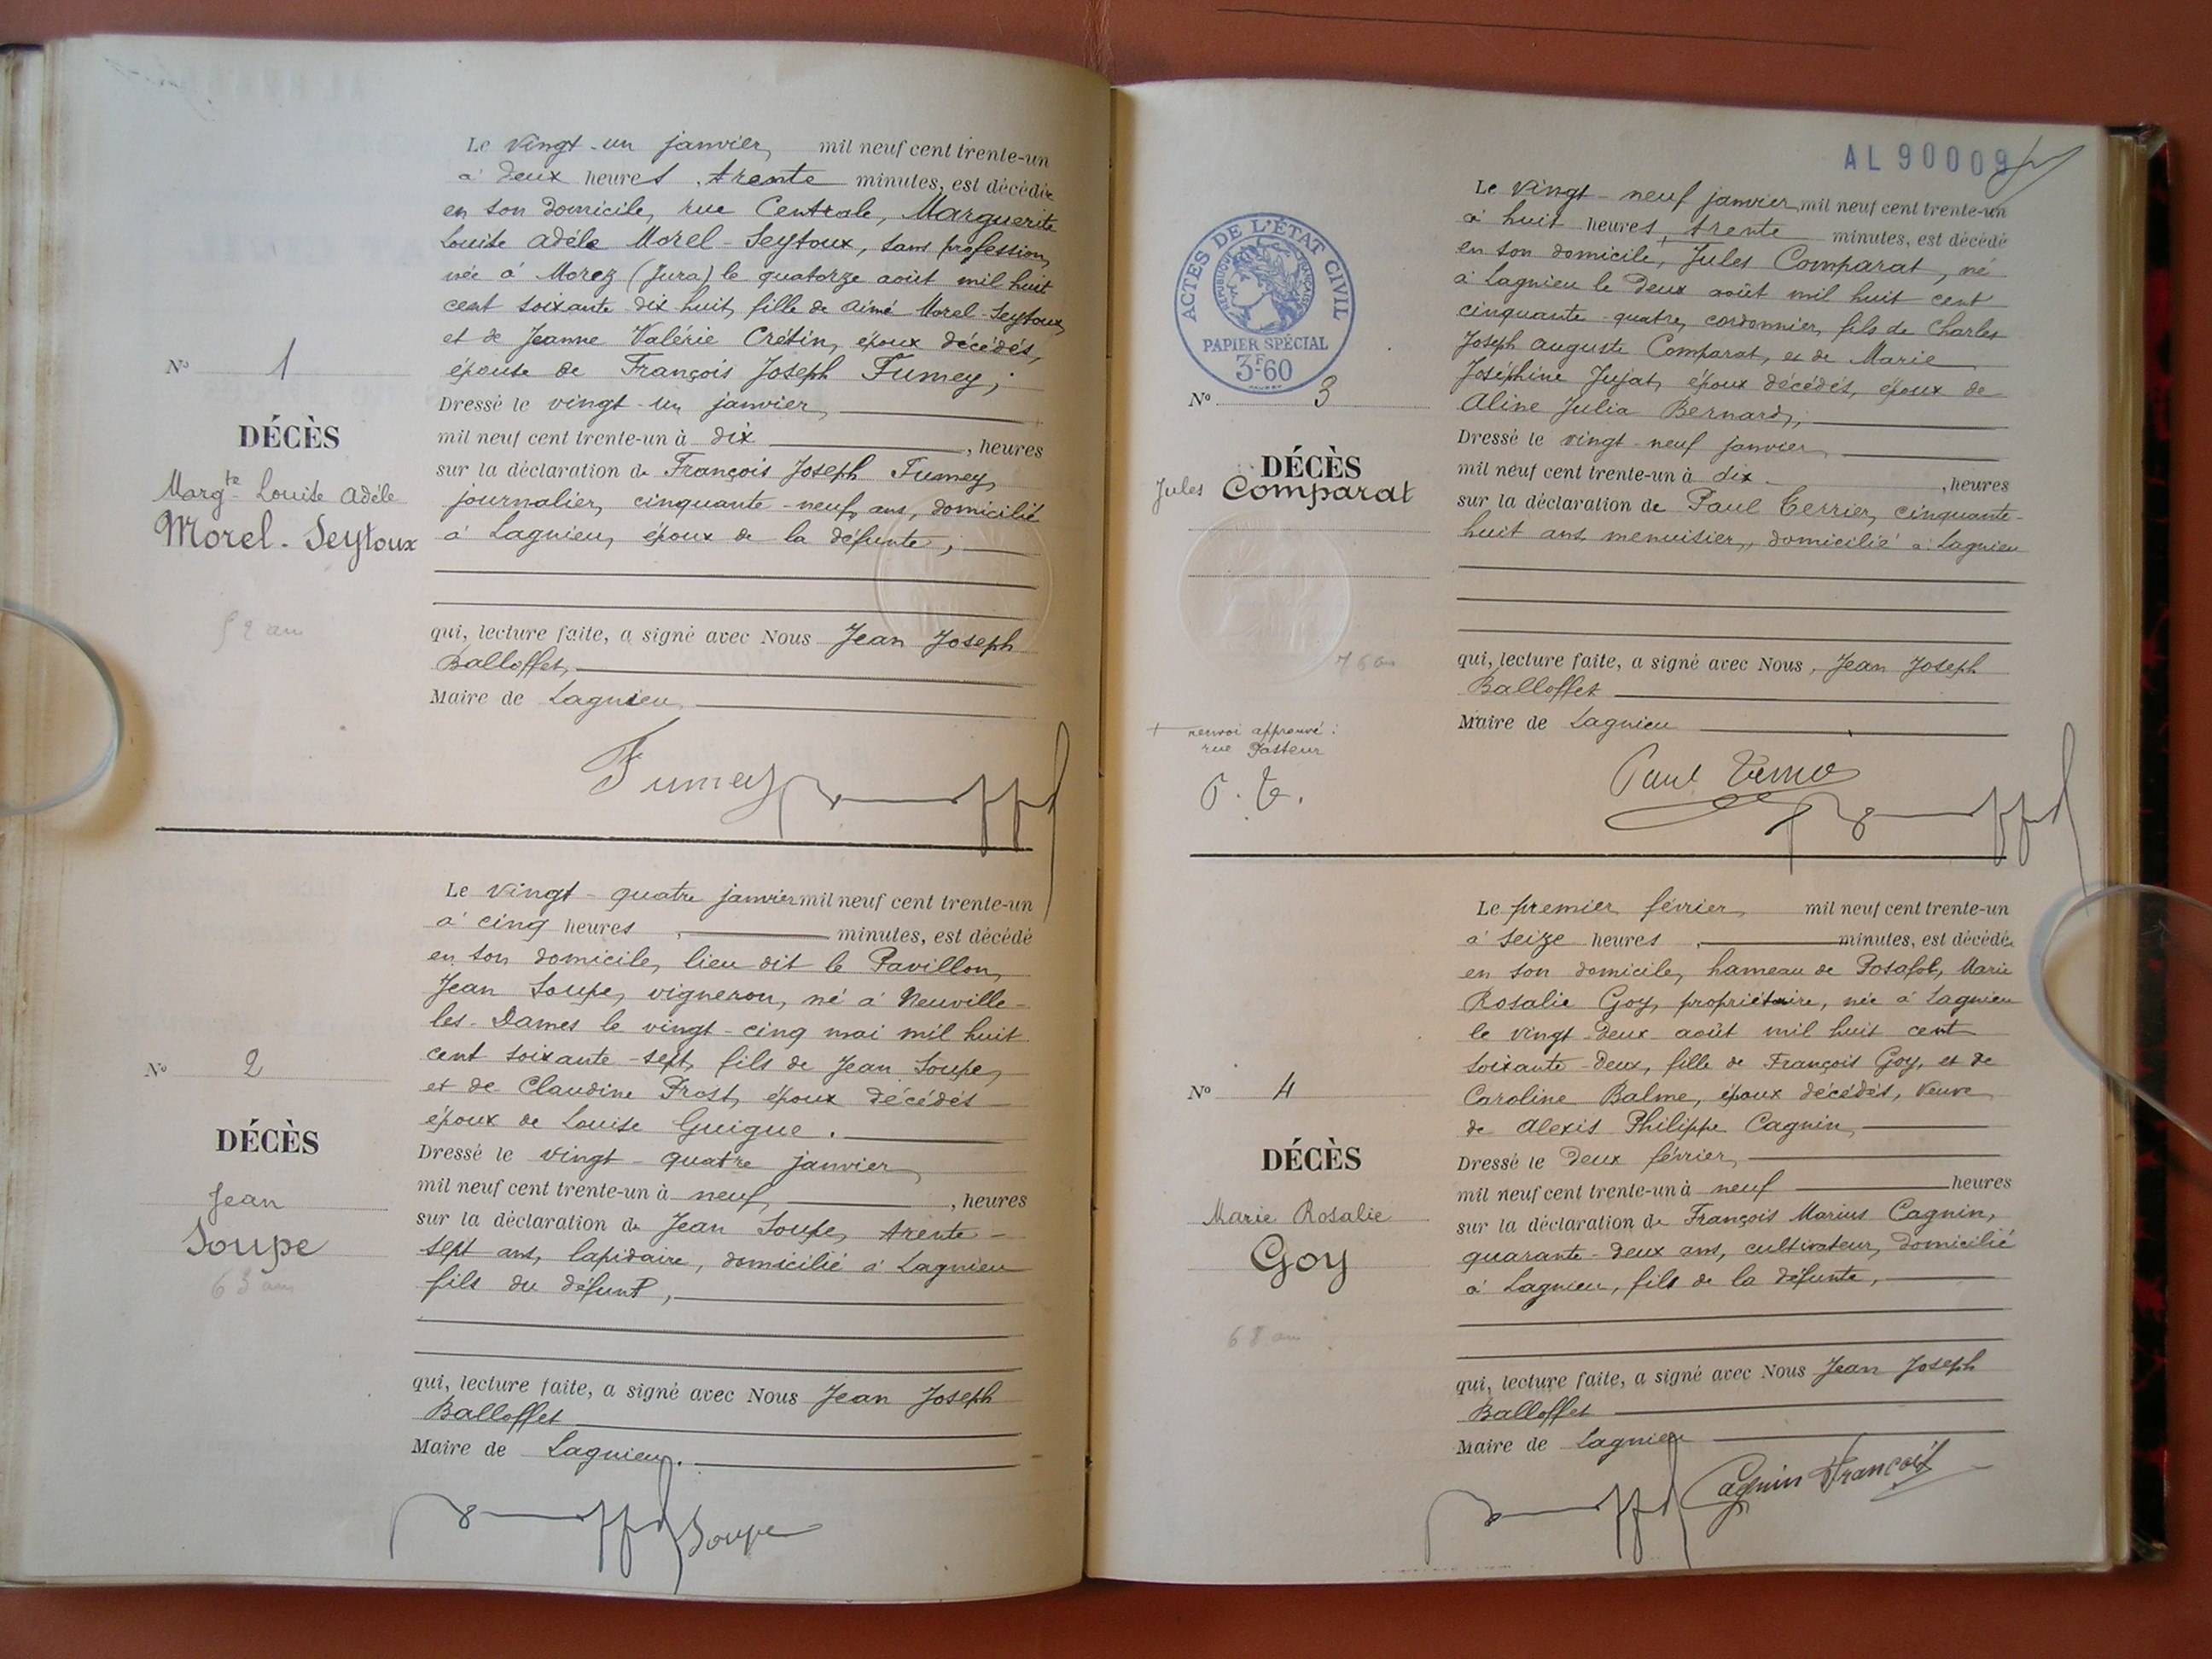 Le vingt-un janvier, mil neuf cent trente-un
à deux heures, trente minutes, est décédée
en son domicile, rue Centrale, Marguerite
Louise Adèle Morel-Seytoux, sans profession,
née à Morez (Jura) le quatorze août mil huit
cent soixante-dix-huit, fille de Aimé Morel-Seytoux,
et de Jeanne Valérie Crétin, époux décédés,
épouse de François Joseph Fumey;
Dressé le vingt-un janvier,
mil neuf cent trente-un à dix, heures
sur la déclaration de François Joseph Fumey,
journalier, cinquante-neuf ans, domicilié
à Lagnieu, époux de la défunte;
qui, lecture faite, a signé avec Nous Jean Joseph
Balloffet,
Maire de Lagnieu,
Fumey
N° 1
DÉCÈS
Margte Louise Adèle
Morel-Seytoux
52 an
Le vingt-quatre janvier mil neuf cent trente-un
à cinq heures, minutes, est décédé
en son domicile, lieu dit le Pavillon,
Jean Soupe, vigneron, né à Neuville-
les-Dames le vingt-cinq mai mil huit
cent soixante-sept, fils de Jean Soupe,
et de Claudine Prost, époux décédés
époux de Louise Guigue.
Dressé le vingt-quatre janvier,
mil neuf cent trente-un à neuf, heures
sur la déclaration de Jean Soupe, trente-
sept ans, lapidaire, domicilié à Lagnieu
fils du défunt,
qui, lecture faite, a signé avec Nous Jean Joseph
Balloffet
Maire de Lagnieu.
Soupe
N° 2
DÉCÈS
Jean
Soupe
63 ans
AL 90009
ACTES DE L'ÉTAT CIVIL
RÉPUBLIQUE FRANÇAISE
PAPIER SPÉCIAL
3F60
Le vingt-neuf janvier, mil neuf cent trente-un
à huit heures, + trente minutes, est décédé
en son domicile, Jules Comparat, né
à Lagnieu le deux août mil huit cent
cinquante-quatre, cordonnier, fils de Charles
Joseph Auguste Comparat, et de Marie
Joséphine Jujat, époux décédés, époux de
Aline Julia Bernard;
Dressé le vingt-neuf janvier,
mil neuf cent trente-un à dix, heures
sur la déclaration de Paul Terrier, cinquante-
huit ans, menuisier, domicilié à Lagnieu
qui, lecture faite, a signé avec Nous, Jean Joseph
Balloffet
Maire de Lagnieu
Paul
N° 3
DÉCÈS
Jules Comparat
76 an
+ renvoi approuvé:
rue Pasteur
P. T.
Le premier février, mil neuf cent trente-un
à seize heures, minutes, est décédée
en son domicile, hameau de Posafol, Marie
Rosalie Goy, propriétaire, née à Lagnieu
le vingt-deux août mil huit cent
soixante-deux, fille de François Goy, et de
Caroline Balme, époux décédés, veuve
de Alexis Philippe Cagnin,
Dressé le deux février,
mil neuf cent trente-un à neuf heures
sur la déclaration de François Marius Cagnin,
quarante-deux ans, cultivateur, domicilié
à Lagnieu, fils de la défunte,
qui, lecture faite, a signé avec Nous Jean Joseph
Balloffet
Maire de Lagnieu
Cagnin François
N° 4
DÉCÈS
Marie Rosalie
Goy
68 an